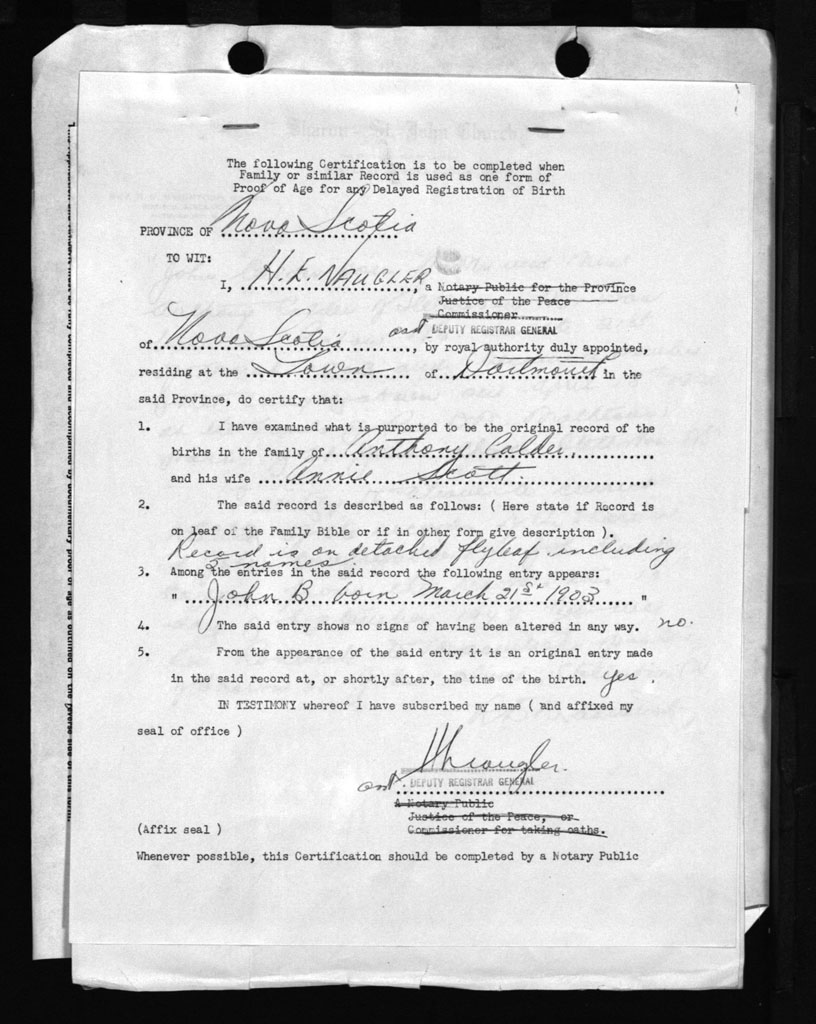 Sharon St. John Church
The following Certification is to be completed when
Family or similar Record is used as one form of
Proof of Age for any Delayed Registration of Birth
PROVINCE OF Nova Scotia
TO WIT:
I, H. E. NAUGLER, a Notary Public for the Province
Justice of the Peace
Commissioner
asst DEPUTY REGISTRAR GENERAL
of Nova Scotia, by royal authority duly appointed,
residing at the Town of Dartmouth in the
said Province, do certify that:
1. I have examined what is purported to be the original record of the
births in the family of Anthony Calder
and his wife Annie Scott.
2. The said record is described as follows: ( Here state if Record is
on leaf of the Family Bible or if in other form give description ).
Record is on detached flyleaf including
3 names.
3. Among the entries in the said record the following entry appears:
" John B born March 21st 1903 "
4. The said entry shows no signs of having been altered in any way. no.
5. From the appearance of the said entry it is an original entry made
in the said record at, or shortly after, the time of the birth. yes.
IN TESTIMONY whereof I have subscribed my name ( and affixed my
seal of office )
HEnaugler.
asst. DEPUTY REGISTRAR GENERAL
A Notary Public
Justice of the Peace, or
(Affix seal ) Commissioner for taking oaths.
Whenever possible, this Certification should be completed by a Notary Public